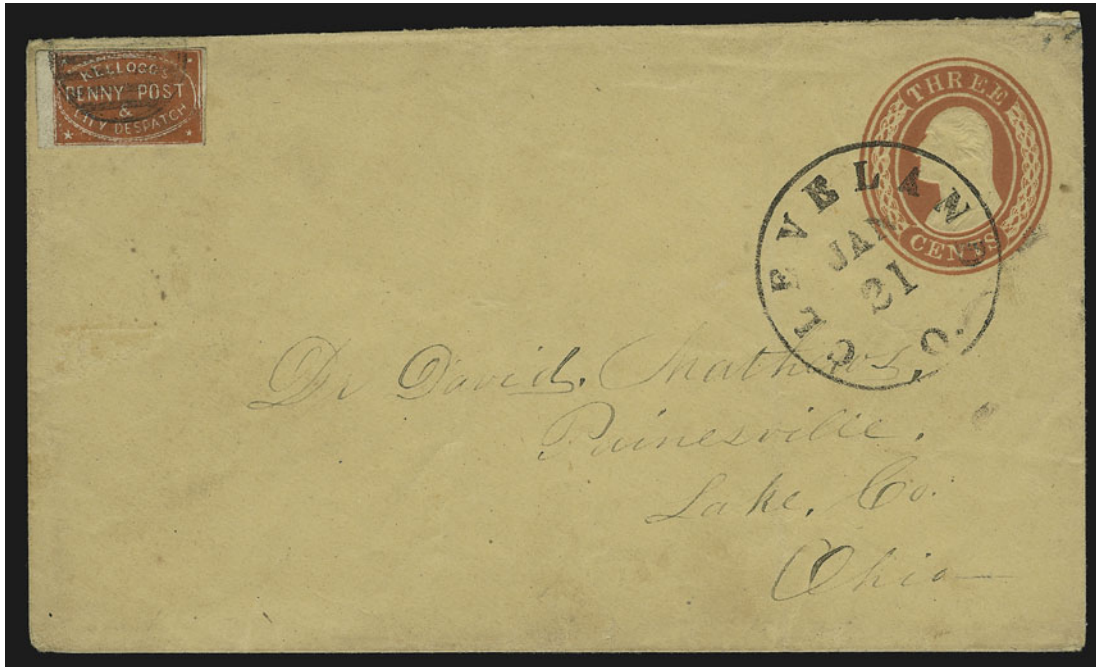 KELLOGG'S
PENNY POST
&
CITY DESPATCH
THREE
CENTS
CLEVELAND O.
JAN
21
Dr David. Mathews,
Painesville.
Lake, Co.
Ohio